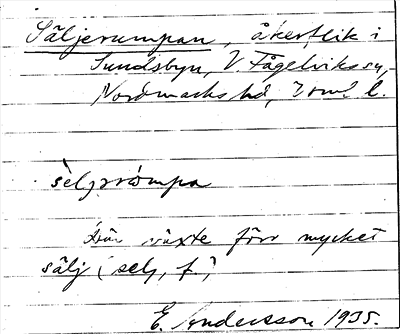 Säljerumpan, åkerflik i
Sundsbyn, V. Fågelviks sn,
Nordmarks hd, Vrml. l.
sèljrómpa
Där växte förr mycket
sälj (selj, f.)
E. Andersson 1935.